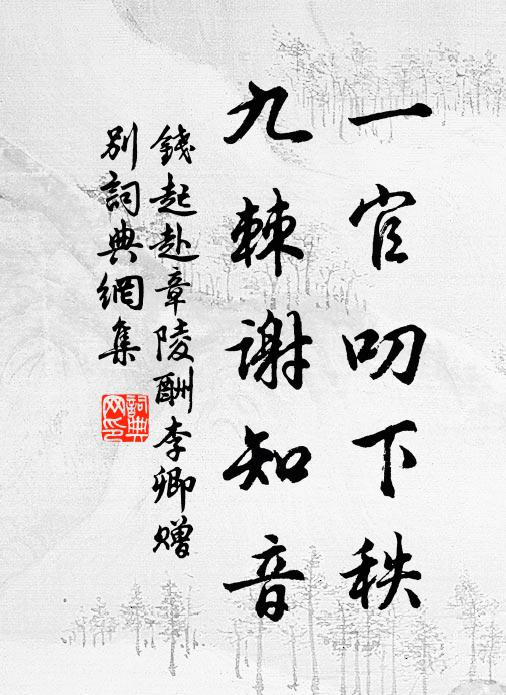 一官叨下秩
九棘謝知音
錢起赴章陵酬李卿贈
別詞典網集
詞典网印